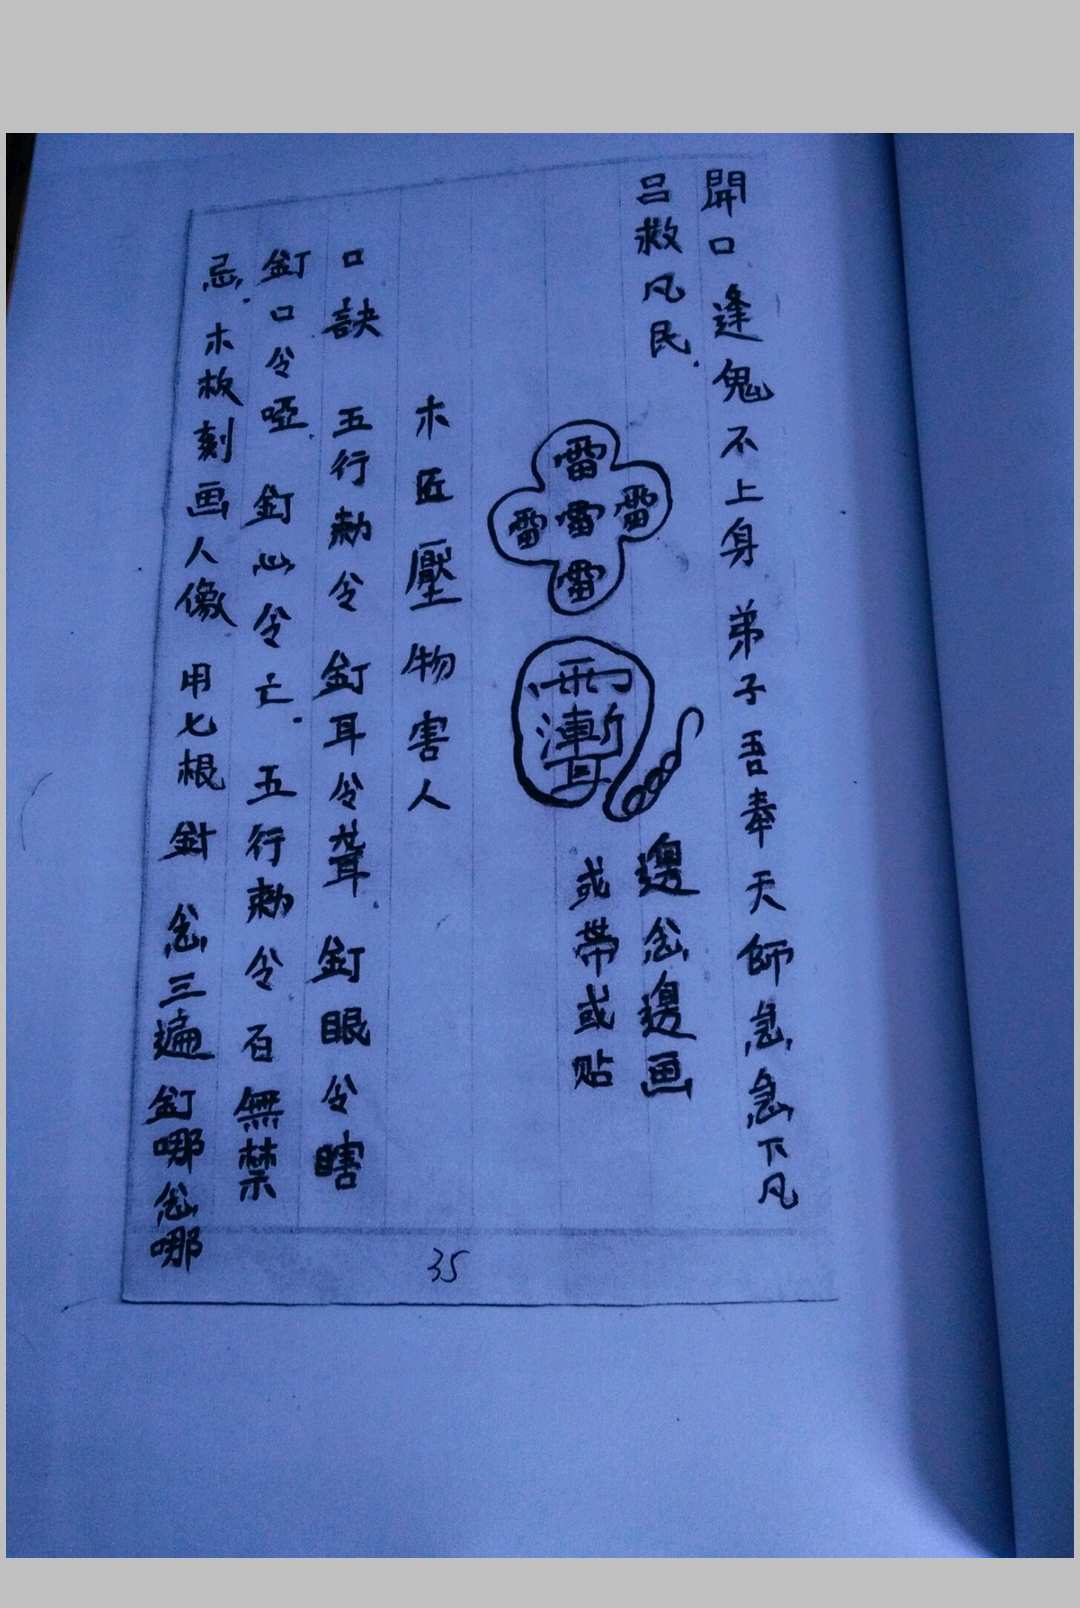 開口逢鬼不上身 弟子吾奉天師急急下凡
呂救凡民.
雷
雷雷雷
雷
漸耳
邊念邊画
或帶或贴
木匠壓物害人
口訣 五行勅令 釘耳令聋. 釘眼令瞎
釘口令啞. 釘心令亡. 五行勅令百無禁
忌. 木板刻画人像 用七根針 念三遍 釘哪念哪
35